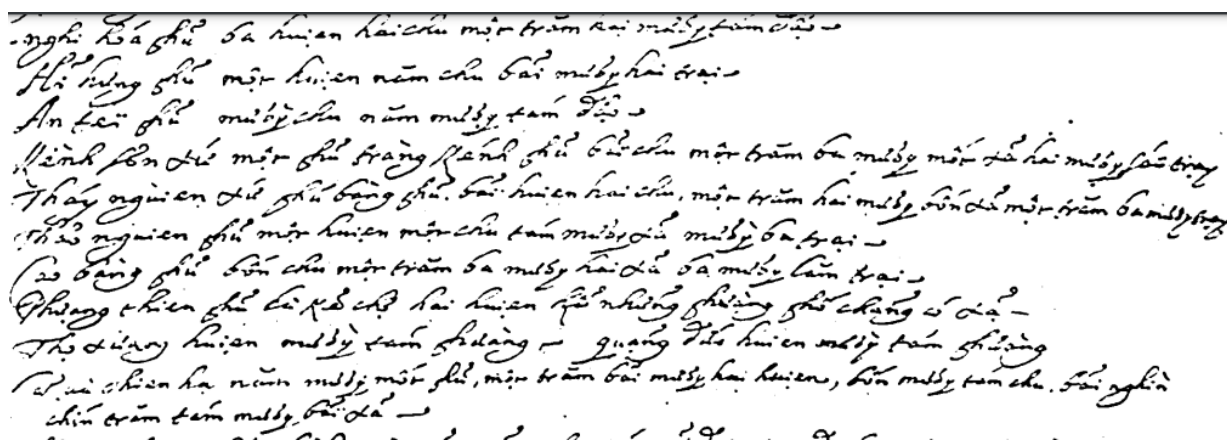 nghi hóa phủ ba huịen hai chu một trăm hai mưẽy tám đậo
Hi hưng phủ một huịen năm chu bãi mưẽy hai trại
An teï phủ mưẽỳ chu năm mưẽy tám đậo
Kênh sởn xứ một phủ tràng kénh phủ bãi chu một trăm ba mưẽy mốt xã hai mưẽy sáu trại
Tháy nguien xứ phú bàng phủ, bãi huịen hai chu, một trăm hai mưẽy bốn xã một trăm ba mưẽy trại
phủ một huịen một chu tám mưẽy xã mưẽỳ ba trại
Cao bàng phủ bốn chu một trăm ba mưẽy hai xã ba mưẽy lăm trại
Phụng thien phủ kẻ chợ hai huịen những phường phố chảng có xã
Thọ xương huịen mưẽỳ tám phường quảng đức huịen mưẽỳ tám phường
thien hạ năm mưẽy mốt phủ, một trăm bãi mưẽy hai huịen, bốn mưẽy tám chu, bãi nghìn
chín trăm tám mưẽy bãi xã